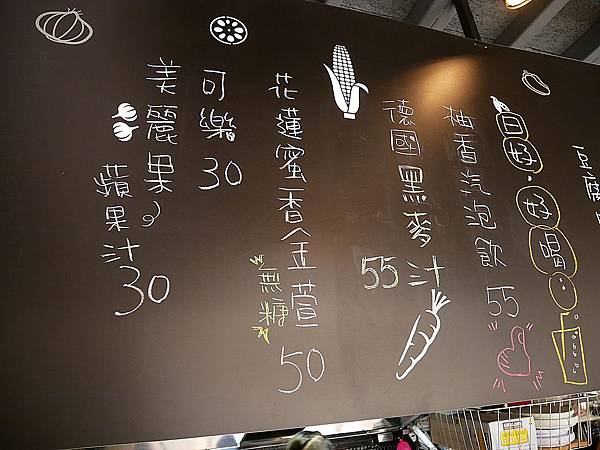 豆腐
自好·好喝
柚香汽泡飲 55
德國黑麥汁 55
花蓮蜜香金萱 無糖 50
可樂 30
美麗果
蘋果汁 30